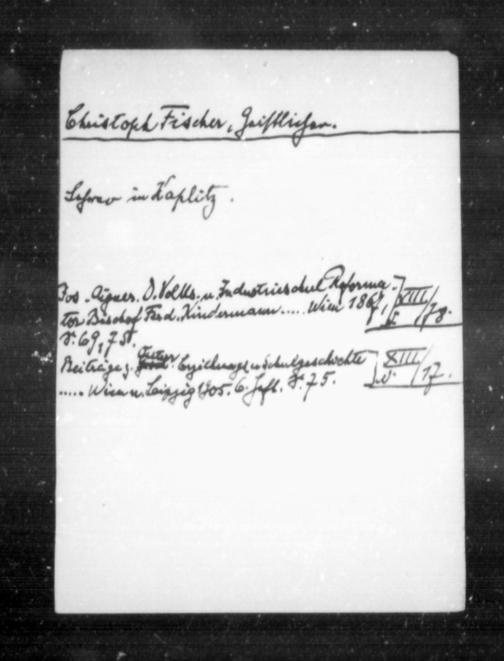 Christoph Fischer, Geistlicher.
Lehrer in Kaplitz.
Jos. Aigner. D. Volks- u. Industrieschul Reforma-
tor Bischof Ferd. Kindermann ..... Wien 1867, VIII/78.
S. 69, 75.
Beiträge z. Österr. Erziehungs u. Schulgeschichte XIII/17.
..... Wien u. Leipzig 1905. 6. Heft. S. 75.